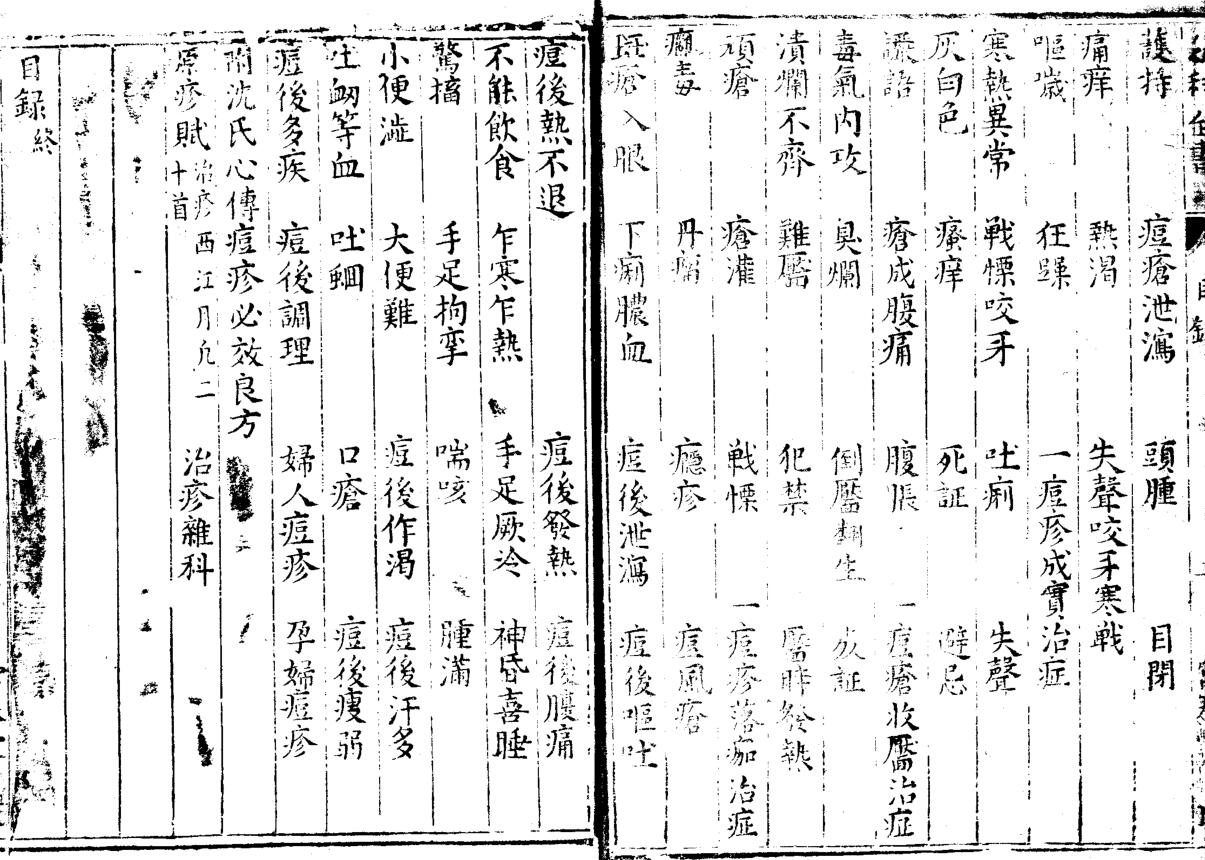 全書
目錄
護持 痘瘡泄瀉 頭腫 目閉
痛痒 熱渴 失聲咬牙寒戰
嘔噦 狂躁 一痘疹成實治症
寒熱異常 戰慄咬牙 吐痢 失聲
灰白色 瘙痒 死証 避忌
譫語 瘡成腹痛 腹脹 一痘瘡收靨治症
毒氣内攻 臭爛 倒靨 生 証
潰爛不齊 難靨 犯禁 靨時發熱
頑瘡 瘡灌 戰慄 一痘疹落痂治症
癩毒 丹瘤 癮疹 痘風瘡
斑瘡入眼 下痢膿血 痘後泄瀉 痘後嘔吐
痘後熱不退 痘後發熱 痘後腹痛
不能飲食 乍寒乍熱 手足厥冷 神昏喜睡
驚搐 手足拘攣 喘咳 腫滿
小便澁 大便難 痘後作渴 痘後汗多
吐衂等血 吐蛔 口瘡 痘後瘦弱
痘後多疾 痘後調理 婦人痘疹 孕婦痘疹
附沈氏心傳痘疹必效良方
原疹賦 治疹西江月凢二十首 治疹雜科
目錄終